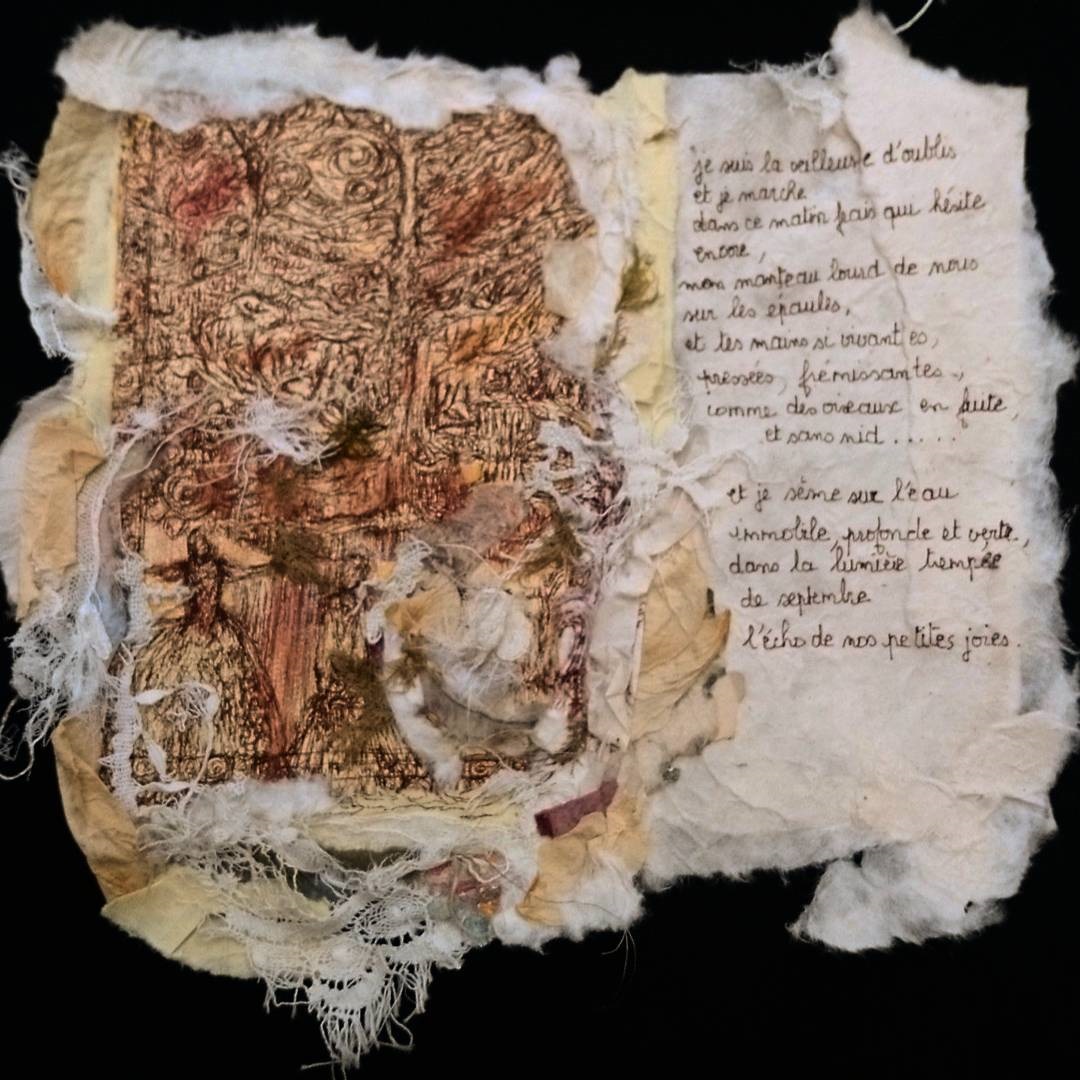 je suis la veilleuse d'oublis
et je marche
dans ce matin frais qui hésite
encore,
mon manteau lourd de nous
sur les épaules,
et tes mains si vivantes,
pressées, frémissantes,
comme des oiseaux en fuite,
et sans nid .....
et je sème sur l'eau
immobile, profonde et verte,
dans la lumière trempée
de septembre
l'écho de nos petites joies.